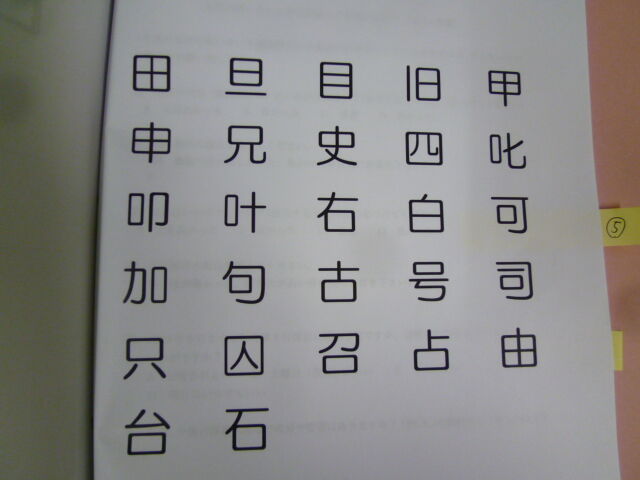 田 旦 目 旧 甲
申 兄 史 四 叱
叩 叶 右 白 可
加 句 古 号 司
只 囚 召 占 由
台 石
⑤